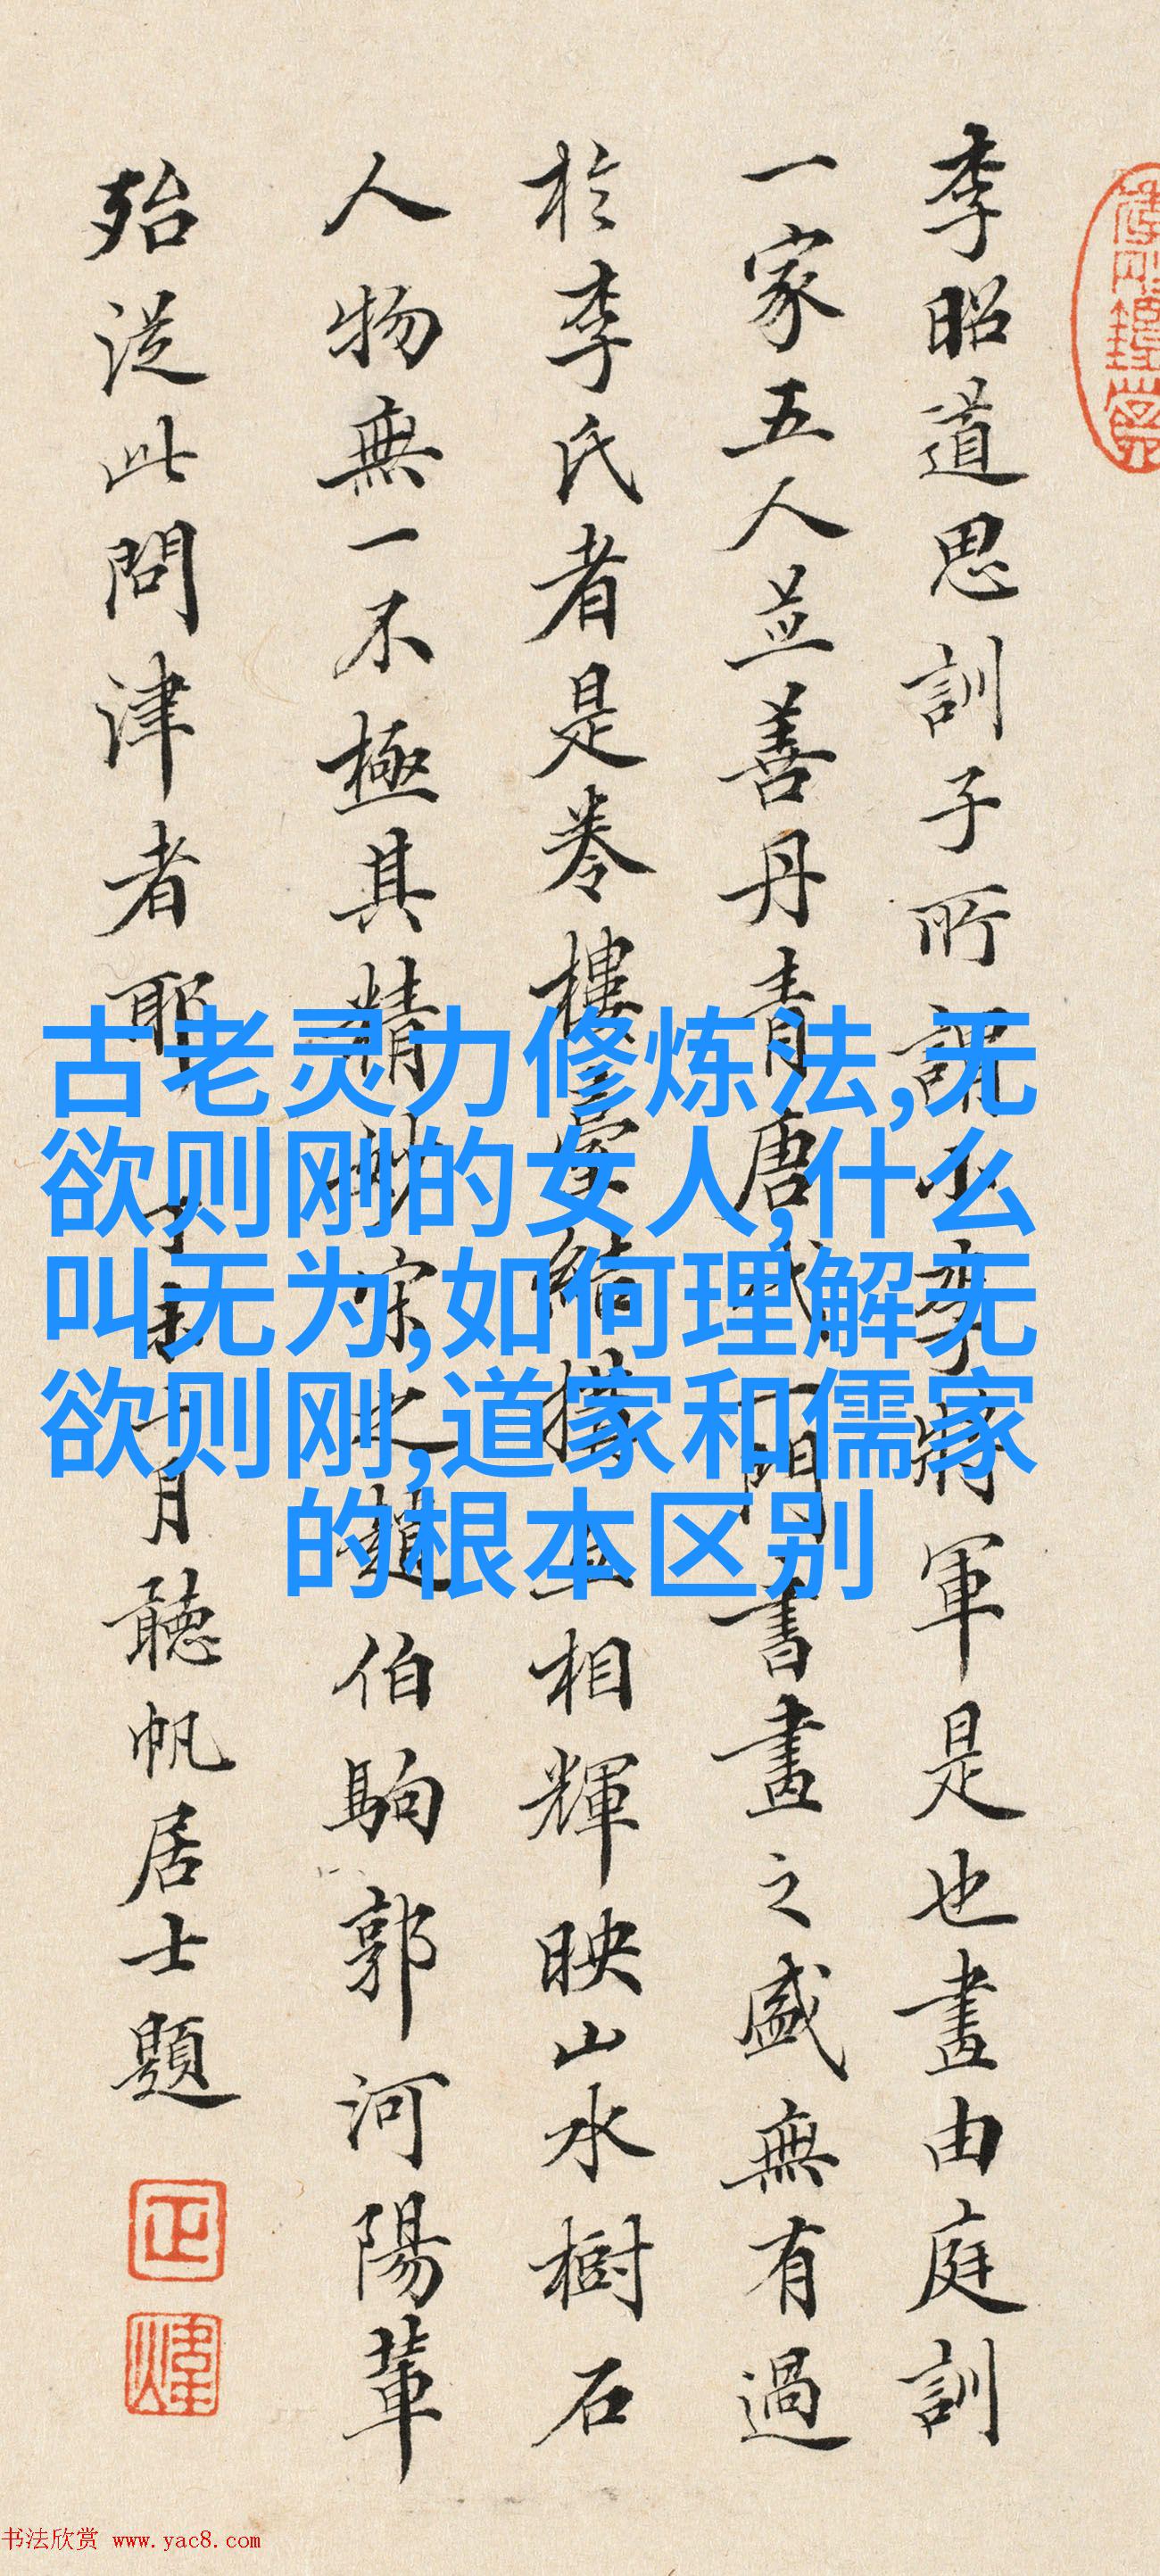 李昭道思訓子所謂小李將軍是也畫由庭訓
一家五人並善丹青唐代一門書畫之盛無有過
於李氏者是卷樓臺結構互相輝映山水樹石
人物無一不極其精妙宋之趙伯駒郭河陽輩
殆從此問津者耶
月聽帆居士題
古老灵力修炼法,无
欲则刚的女人,什么
叫无为,如何理解无
欲则刚,道家和儒家
的根本区别
书法欣赏 www.yac8.com